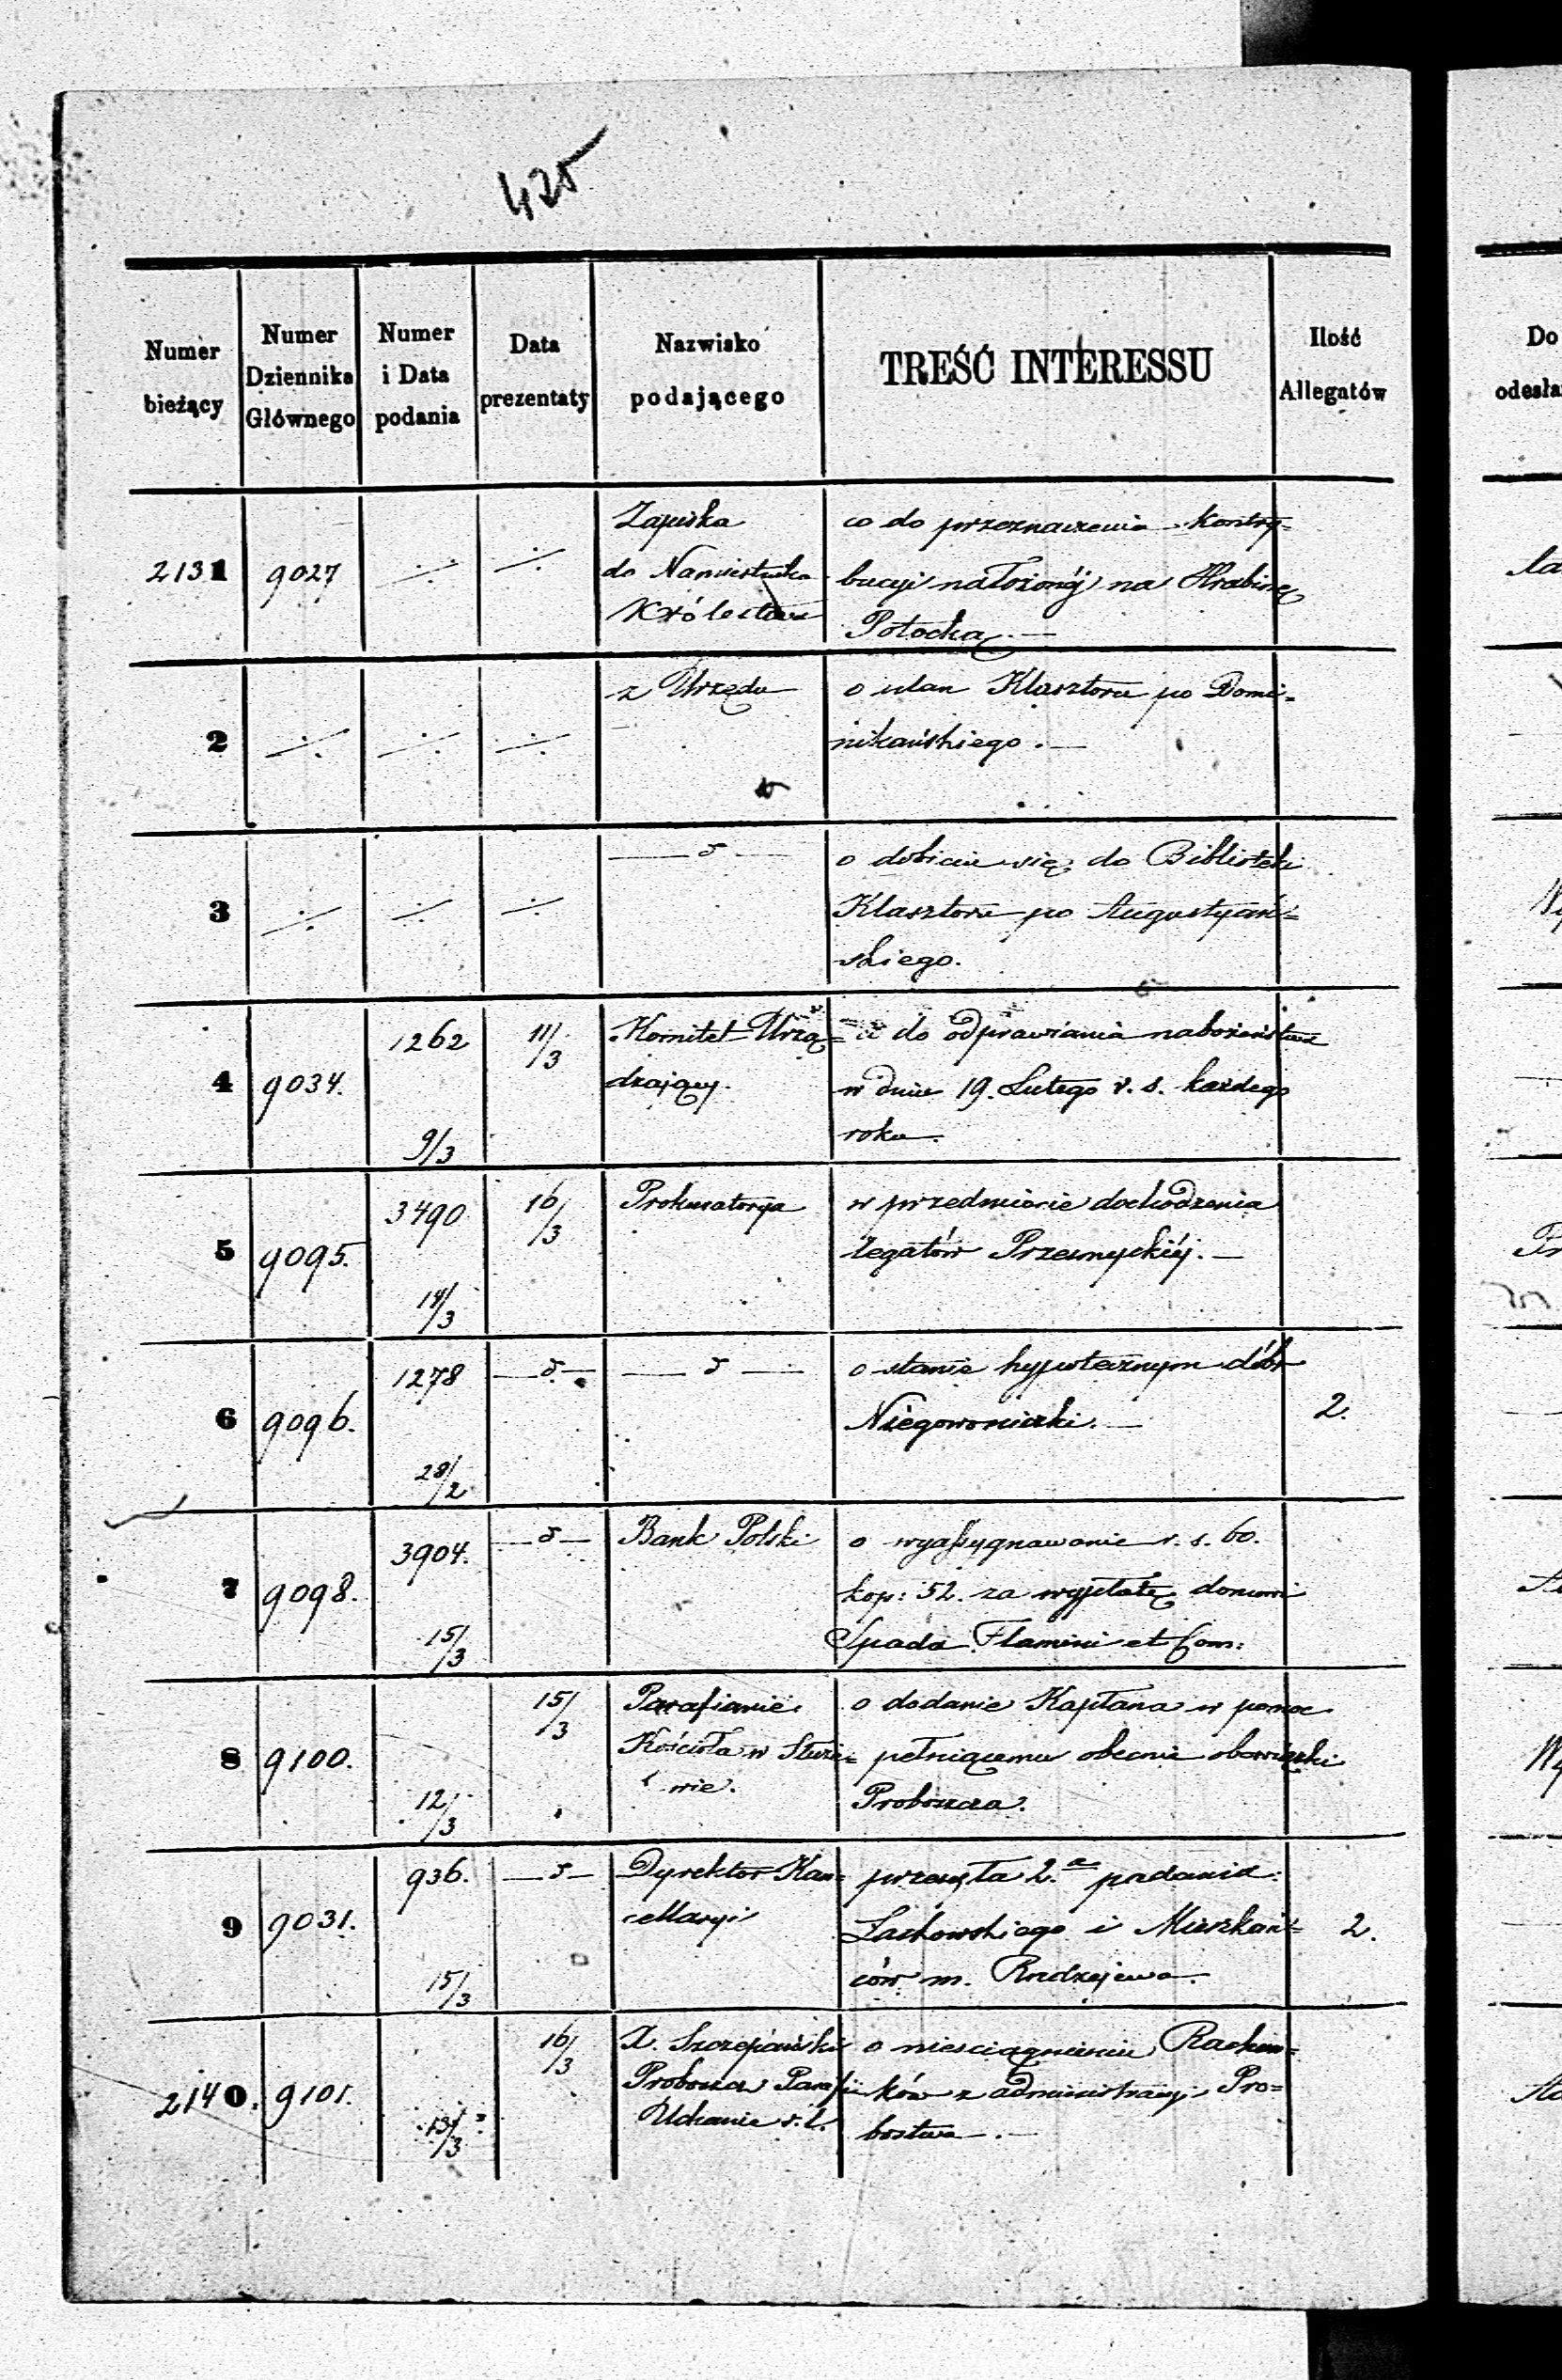 425
Numer bieżący | Numer Dziennika Głównego | Numer i Data podania | Data prezentaty | Nazwisko podającego | TREŚĆ INTERESSU | Ilość Allegatów
Do
odesła
2131 | 9027 | ÷ | ÷ | Zapiska | co do przeznaczenia kontry=
do Namiestnika | bucyi nałożonéj na Hrabinę
Królestwa | Potocką. —
2 | ÷ | ÷ | ÷ | z Urzędu | o Klasztoru po Domi=
nikańskiego. —
3 | ÷ | ÷ | ÷ | — " — | o dobiciu się do Biblioteki
Klasztoru po Augustyań=
skiego.
4 | 9034. | 1262 9/3 | 11/3 | Komitet Urzą= | do odprawiania nabożeństwa
dzający. | w dniu 19. Lutego v. s. każdego
roku.
5 | 9095. | 3490 14/3 | 16/3 | Prokuratorya | w przedmiocie dochodzenia
legatów Przesmyckiéj. —
6 | 9096. | 1278 28/2 | — " — | — " — | o stanie hypotecznym dóbr | 2.
Niegowoniczki. —
7 | 9098. | 3904. 15/3 | — " — | Bank Polski | o wyassygnowanie r. s. 60.
kop: 52. za wypłatę domowi
Spada Flamini et Com:
8 | 9100. | 12/3 | 15/3 | Parafianie | o dodanie Kapłana w pomoc
Kościoła w | pełniącemu obecnie obowiązki
wie. | Proboszcza.
9 | 9031. | 936. 15/3 | — " — | Dyrektor Kan= | przesyła 2.a podania: | 2.
cellaryi | Lachowskiego i Mieszkań=
ców m. Radziejewa.
2140. | 9101. | 13/3 | 16/3 | X. Szczepański | o nieściągnieniu Rachun=
Proboszcz Parafii | ków z administracyi Pro=
Uchanie r. l. | bostwa. —